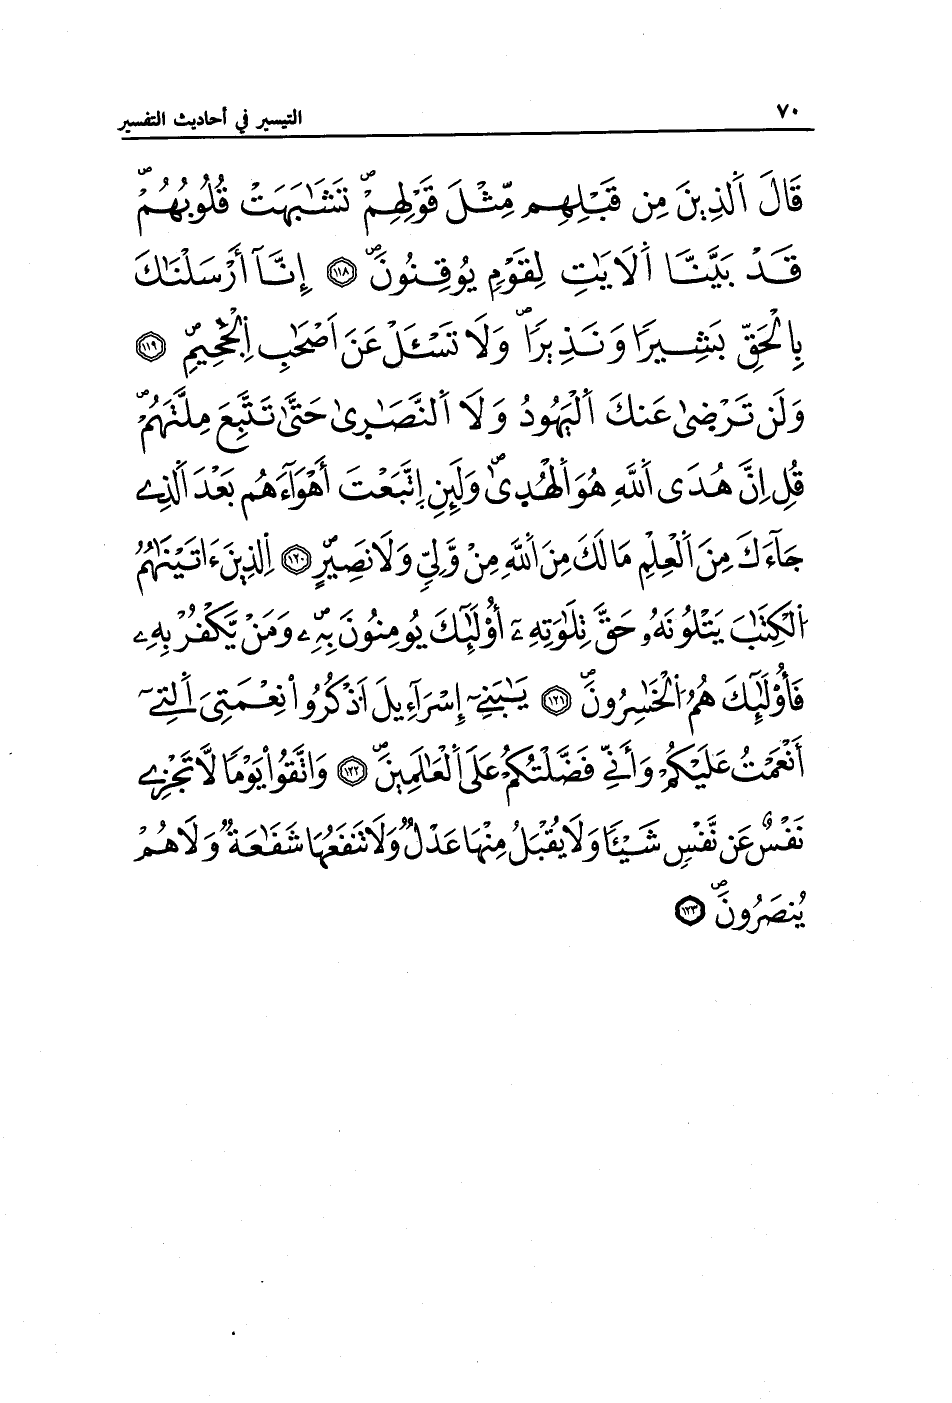 ٧٠
التيسير في أحاديث التفسير
قَالَ اَ۬لذِينَ مِن قَبْلِهِم مِّثْلَ قَوْلِهِمْۖ تَشَٰبَهَتْ قُلُوبُهُمْۖ
قَدْ بَيَّنَّا اَ۬لَايَٰتِ لِقَوْمٖ يُوقِنُونَۖ ١١٨ إِنَّآ أَرْسَلْنَٰكَ
بِالْحَقِّ بَشِيراٗ وَنَذِيراٗۖ وَلَا تَسْـَٔلْ عَنَ اَصْحَٰبِ اِ۬لْجَحِيمِۖ ١١٩
وَلَن تَرْضىٰ عَنكَ اَ۬لْيَهُودُ وَلَا اَ۬لنَّصَٰرىٰ حَتَّىٰ تَتَّبِعَ مِلَّتَهُمْۖ
قُلِ اِنَّ هُدَى اَ۬للَّهِ هُوَ اَ۬لْهُدىٰۖ وَلَئِنِ اِتَّبَعْتَ أَهْوَآءَهُم بَعْدَ اَ۬لذِے
جَآءَكَ مِنَ اَ۬لْعِلْمِ مَا لَكَ مِنَ اَ۬للَّهِ مِنْ وَّلِيّٖ وَلَا نَصِيرٍۖ ١٢٠ اِ۬لذِينَ ءَاتَيْنَٰهُمُ
اُ۬لْكِتَٰبَ يَتْلُونَهُۥ حَقَّ تِلَٰوَتِهِۦٓ أُوْلَٰٓئِكَ يُومِنُونَ بِهِۦۖ وَمَنْ يَّكْفُرْ بِهِۦ
فَأُوْلَٰٓئِكَ هُمُ اُ۬لْخَٰسِرُونَۖ ١٢١ يَٰبَنِےٓ إِسْرَآءِيلَ اَ۟ذْكُرُواْ نِعْمَتِيَ اَ۬لتِےٓ
أَنْعَمْتُ عَلَيْكُمْ وَأَنِّے فَضَّلْتُكُمْ عَلَى اَ۬لْعَٰلَمِينَۖ ١٢٢ وَاتَّقُواْ يَوْماٗ لَّا تَجْزِے
نَفْسٌ عَن نَّفْسٖ شَيْـٔاٗ وَلَا يُقْبَلُ مِنْهَا عَدْلٞ وَلَا تَنفَعُهَا شَفَٰعَةٞ وَلَا هُمْ
يُنصَرُونَۖ ١٢٣